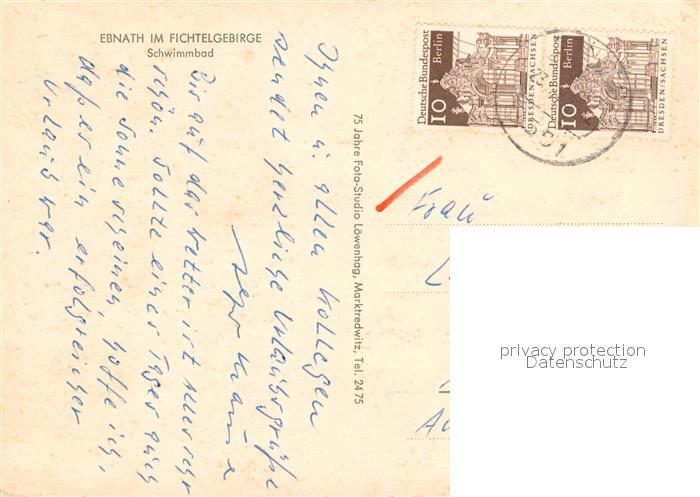 EBNATH IM FICHTELGEBIRGE
Schwimmbad
Ihnen u. allen Kollegen
sendet herzliche Urlaubsgrüße
Bis auf das Wetter ist alles sehr
schön. Sollte eines Tages auch
die Sonne scheinen, hoffe ich,
daß es ein erfolgreicher
Urlaub war.
75 Jahre Foto-Studio Löwenhag, Marktredwitz, Tel. 24 75
Deutsche Bundespost
Berlin
10
DRESDEN/SACHSEN
Deutsche Bundespost
Berlin
10
DRESDEN/SACHSEN
Frau
privacy protection
Datenschutz